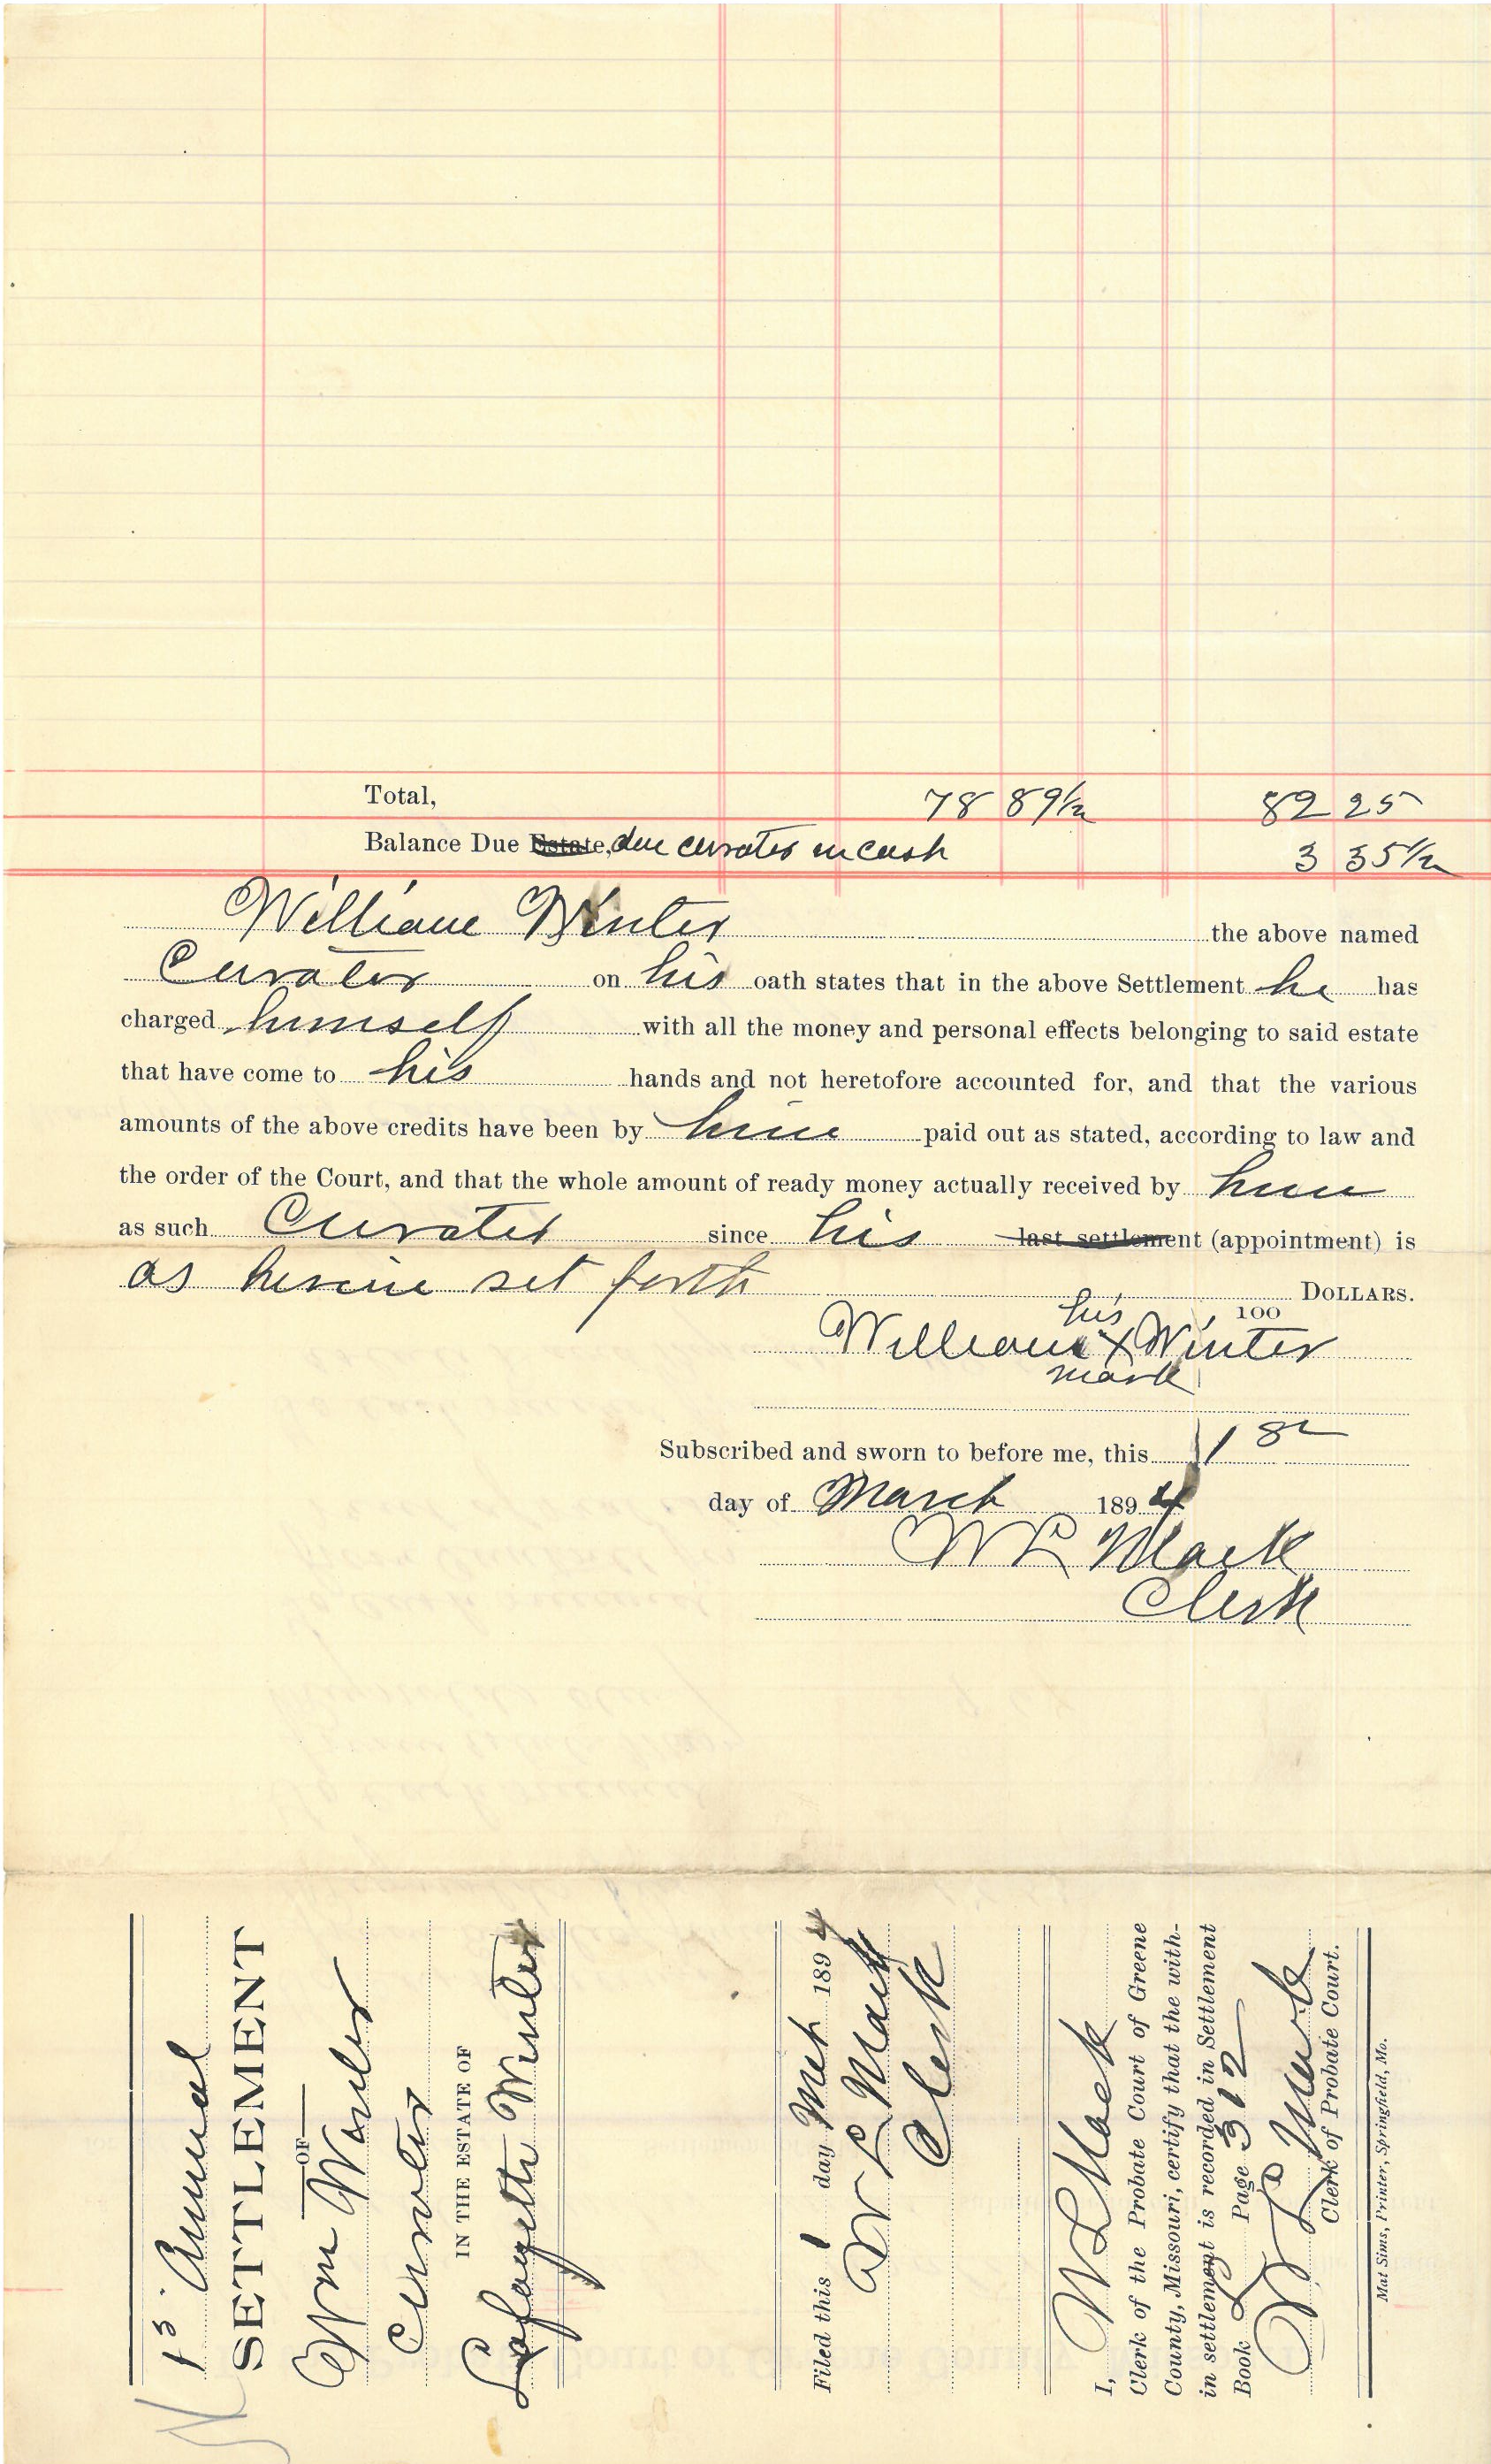 Total, 78 89½ 82 25
Balance Due Estate, due curator in cash 3 35½
William Winter the above named
Curator on his oath states that in the above Settlement he has
charged himself with all the money and personal effects belonging to said estate
that have come to his hands and not heretofore accounted for, and that the various
amounts of the above credits have been by him paid out as stated, according to law and
the order of the Court, and that the whole amount of ready money actually received by him
as such Curator since his last settlement (appointment) is
as herein set forth DOLLARS.
100
his
William X Winter
mark
Subscribed and sworn to before me, this 1
day of March 1894
W L Mack
Clerk
1 Annual
SETTLEMENT
OF
Wm Winter
Curator
IN THE ESTATE OF
Lafayette Winter
Filed this 1 day Mch 1894
W L Mack
Clerk
I, W L Mack
Clerk of the Probate Court of Greene
County, Missouri, certify that the with-
in settlement is recorded in Settlement
Book L Page 312
W L Mack
Clerk of Probate Court.
Mat Sims, Printer, Springfield, Mo.